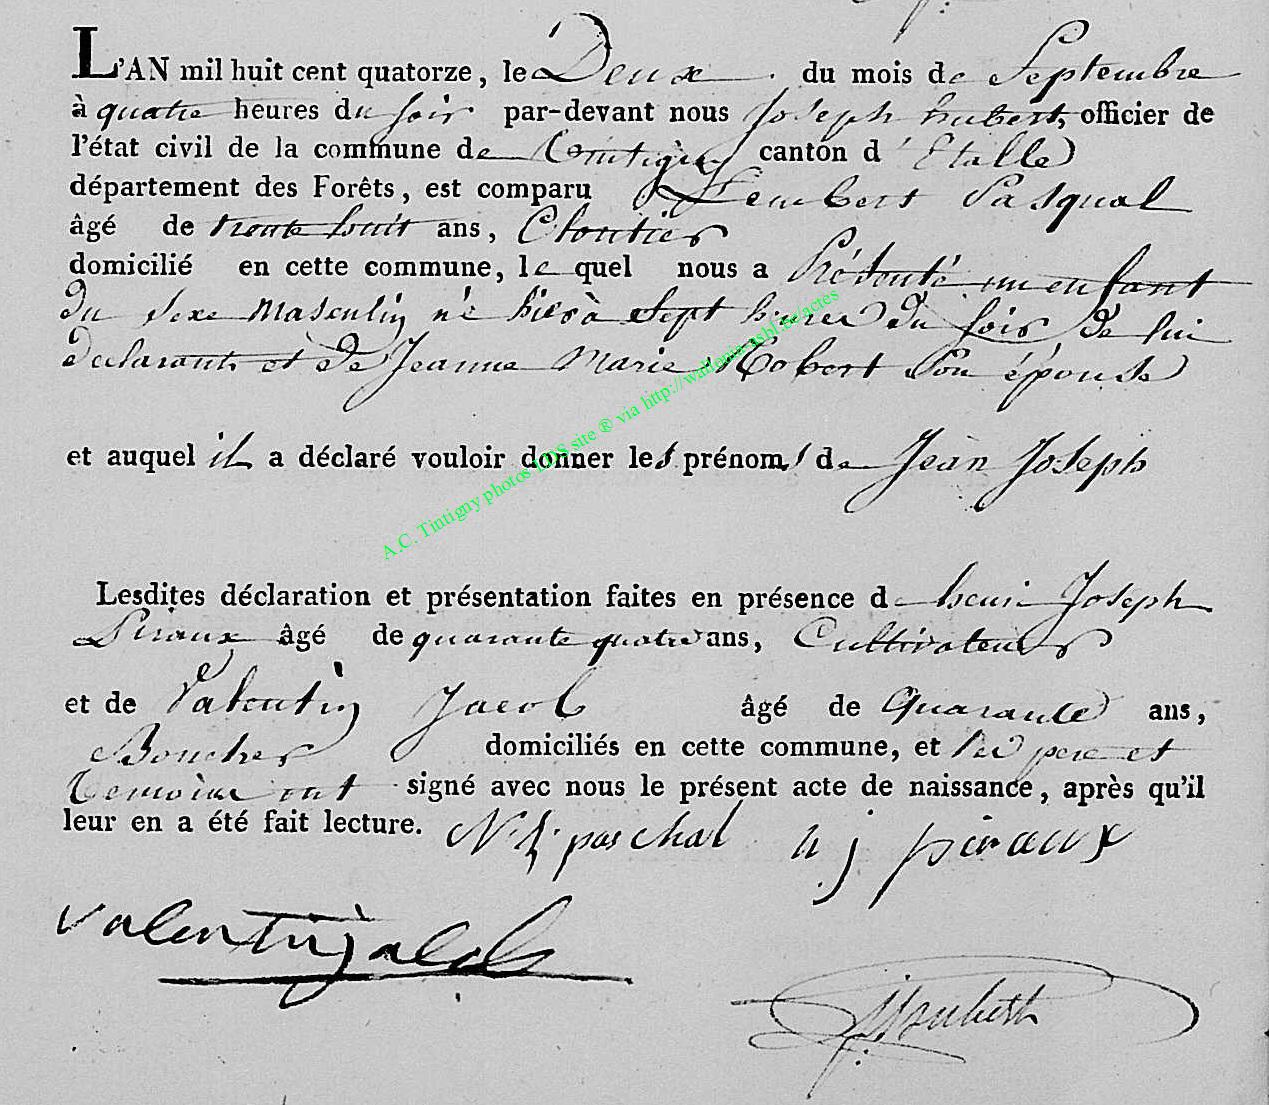 L'AN mil huit cent quatorze, le Deux du mois de Septembre
à quatre heures du soir par-devant nous Joseph hubert, officier de
l'état civil de la commune de Tintigny canton d'Etalle
département des Forêts, est comparu Lembert Pasqual
âgé de trente huit ans, Cloutier
domicilié en cette commune, le quel nous a Présenté un enfant
du sexe Masculin né hier à Sept heures du soir de lui
déclarant et de Jeanne Marie Robert Son épouse
et auquel il a déclaré vouloir donner les prénoms de Jean Joseph
Lesdites déclaration et présentation faites en présence de henri Joseph
Piraux âgé de quarante quatre ans, Cultivateur
et de Valentin Jacob âgé de Quarante ans,
Boucher domiciliés en cette commune, et les pere et
temoins ont signé avec nous le présent acte de naissance, après qu'il
leur en a été fait lecture. paschal h j piraux
valentin jacob
hubert
A.C. Tintigny photos LDS site ® via http://wallonia-asbl.be/actes